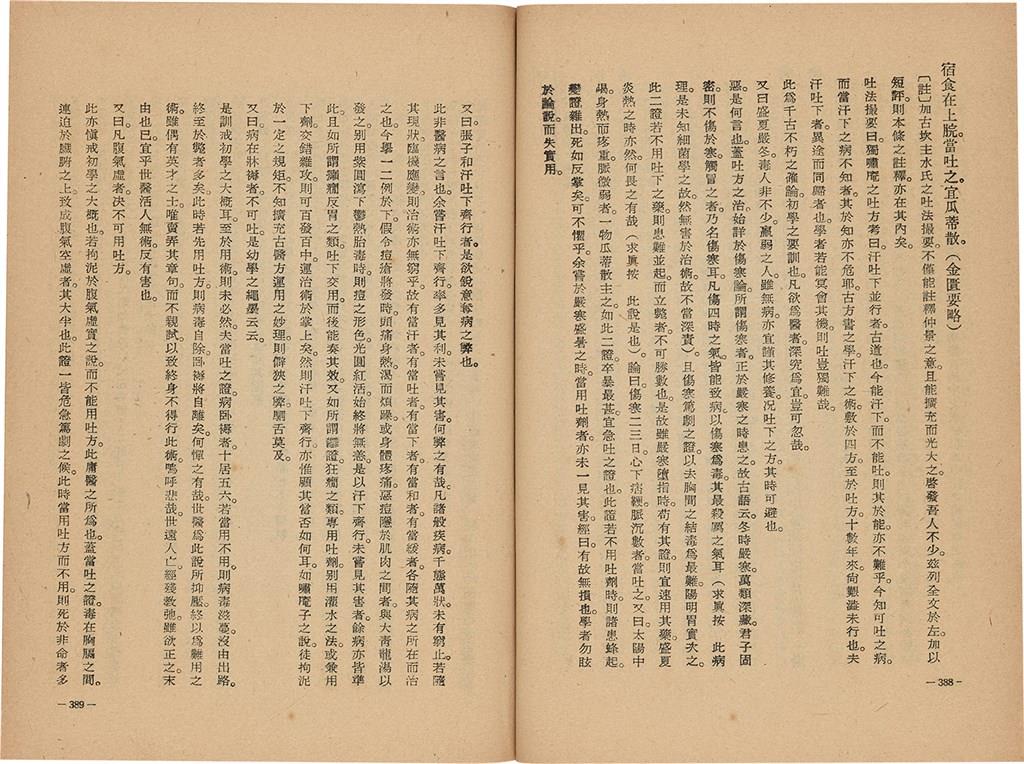 宿食在上脘當吐之宜瓜蒂散。(金匱要略)
〔註〕加古坎主水氏之吐法撮要。不僅能註釋仲景之意。且能擴充而光大之。啓發吾人不少。茲列全文於左。加以
短評。則本條之註釋亦在其內矣。
吐法撮要曰。獨嘯庵之吐方考曰。汗吐下並行者古道也。今能汗下而不能吐。則其於能亦不難乎。今知可吐之病。
而當汗下之病不知者。其於知亦不危耶。古方書之學。汗下之術。敷於四方。至於吐方。十數年來。尙艱澁未行也。夫
汗吐下者。異途而同歸者也。學者若能冥會其機。則吐豈獨難哉。
此爲千古不朽之確論。初學之要訓也。凡欲爲醫者。深究爲宜。豈可忽哉。
又曰。盛夏嚴冬。毒人非不少。羸弱之人。雖無病亦宜謹其修養。况吐下之方。其時可避也。
惡是何言也。蓋吐方之治。始詳於傷寒論。所謂傷寒者。正於嚴寒之時患之。故古語云。冬時嚴寒。萬類深藏。君子固
密。則不傷於寒。觸冒之者。乃名傷寒耳。凡傷四時之氣。皆能致病。以傷寒爲毒。其最殺厲之氣耳(求眞按 此病
理是未知細菌學之故。然無害於治術。故不當深責)。且傷寒篤劇之證。以去胸間之結毒爲最難。陽明胃實次之。
此二證若不用吐下之藥。則患難並起。而立斃者。不可勝數也。是故雖嚴寒墮指時。苟有其證。則宜速用其藥。盛夏
炎熱之時亦然。何畏之有哉(求眞按 此說是也)。論曰。傷寒二三日。心下痞鞕。脈沉數者。當吐之。又曰。太陽中
暍。身熱而疼重。脈微弱者。一物瓜蒂散主之。如此二證。卒暴最甚。宜急吐之證也。此證若不用吐劑時。則諸患蜂起。
變證雜出。死如反掌矣。可不懼乎。余嘗於嚴寒盛暑之時。當用吐劑者。亦未一見其害。經曰。有故無損也。學者勿眩
於論說而失實用。
—388—
又曰。張子和汗吐下齊行者。是欲銳意奪病之弊也。
此非醫病之言也。余嘗汗吐下齊行。率多見其利。未嘗見其害。何弊之有哉。凡諸般疾病。千態萬狀。未有窮止。若隨
其現狀。臨機應變。則治術亦無窮乎。故有當汗者。有當吐者。有當下者。有當和者。有當緩者。各隨其病之所在而治
之也。今擧一二例於下。假令痘瘡將發時。頭痛身熱。渴而煩躁。或身體疼痛。惡痘隱於肌肉之間者。與大靑龍湯以
發之。別用紫圓瀉下鬱熱胎毒時。則痘之形色。光圓紅活。始終將無恙。是以汗下齊行。未嘗見其害者。餘病亦皆準
此。且如所謂癲癇反胃之類。吐下交用。而後能奏其效。又如所謂鬱證狂癇之類。專用吐劑。別用灌水之法。或兼用
下劑。交錯雜攻。則可百發百中。運治術於掌上矣。然則汗吐下齊行。亦惟顧其當否如何耳。如嘯庵子之說。徒拘泥
於一定之規矩。不知擴充古醫方運用之妙理。則僻狹之弊。駟舌莫及。
又曰。病在牀褥者。不可吐。是幼學之繩墨云云。
是訓戒初學之大槪耳。至於用術。則未必然。夫當吐之證。病臥褥者。十居五六。若當用不用。則病毒滋蔓。沒由出路。
終至於斃者多矣。此時若先用吐方。則病毒自除。臥褥將自離矣。何憚之有哉。世醫爲此說所抑壓。終以爲難用之
術。雖偶有英才之士。唯賣弄其章句。而不親試。以致終身不得行此術。嗚呼悲哉。世遠人亡。經殘敎弛。雖欲正之。末
由也已。宜乎世醫活人無術。反有害也。
又曰。凡腹氣虛者。決不可用吐方。
此亦愼戒初學之大槪也。若拘泥於腹氣虛實之說。而不能用吐方。此庸醫之所爲也。蓋當吐之證。毒在胸膈之間。
連迫於臟腑之上。致成腹氣空虛者。其大半也。此證一皆危急篤劇之候。此時當用吐方而不用。則死於非命者多
—389—